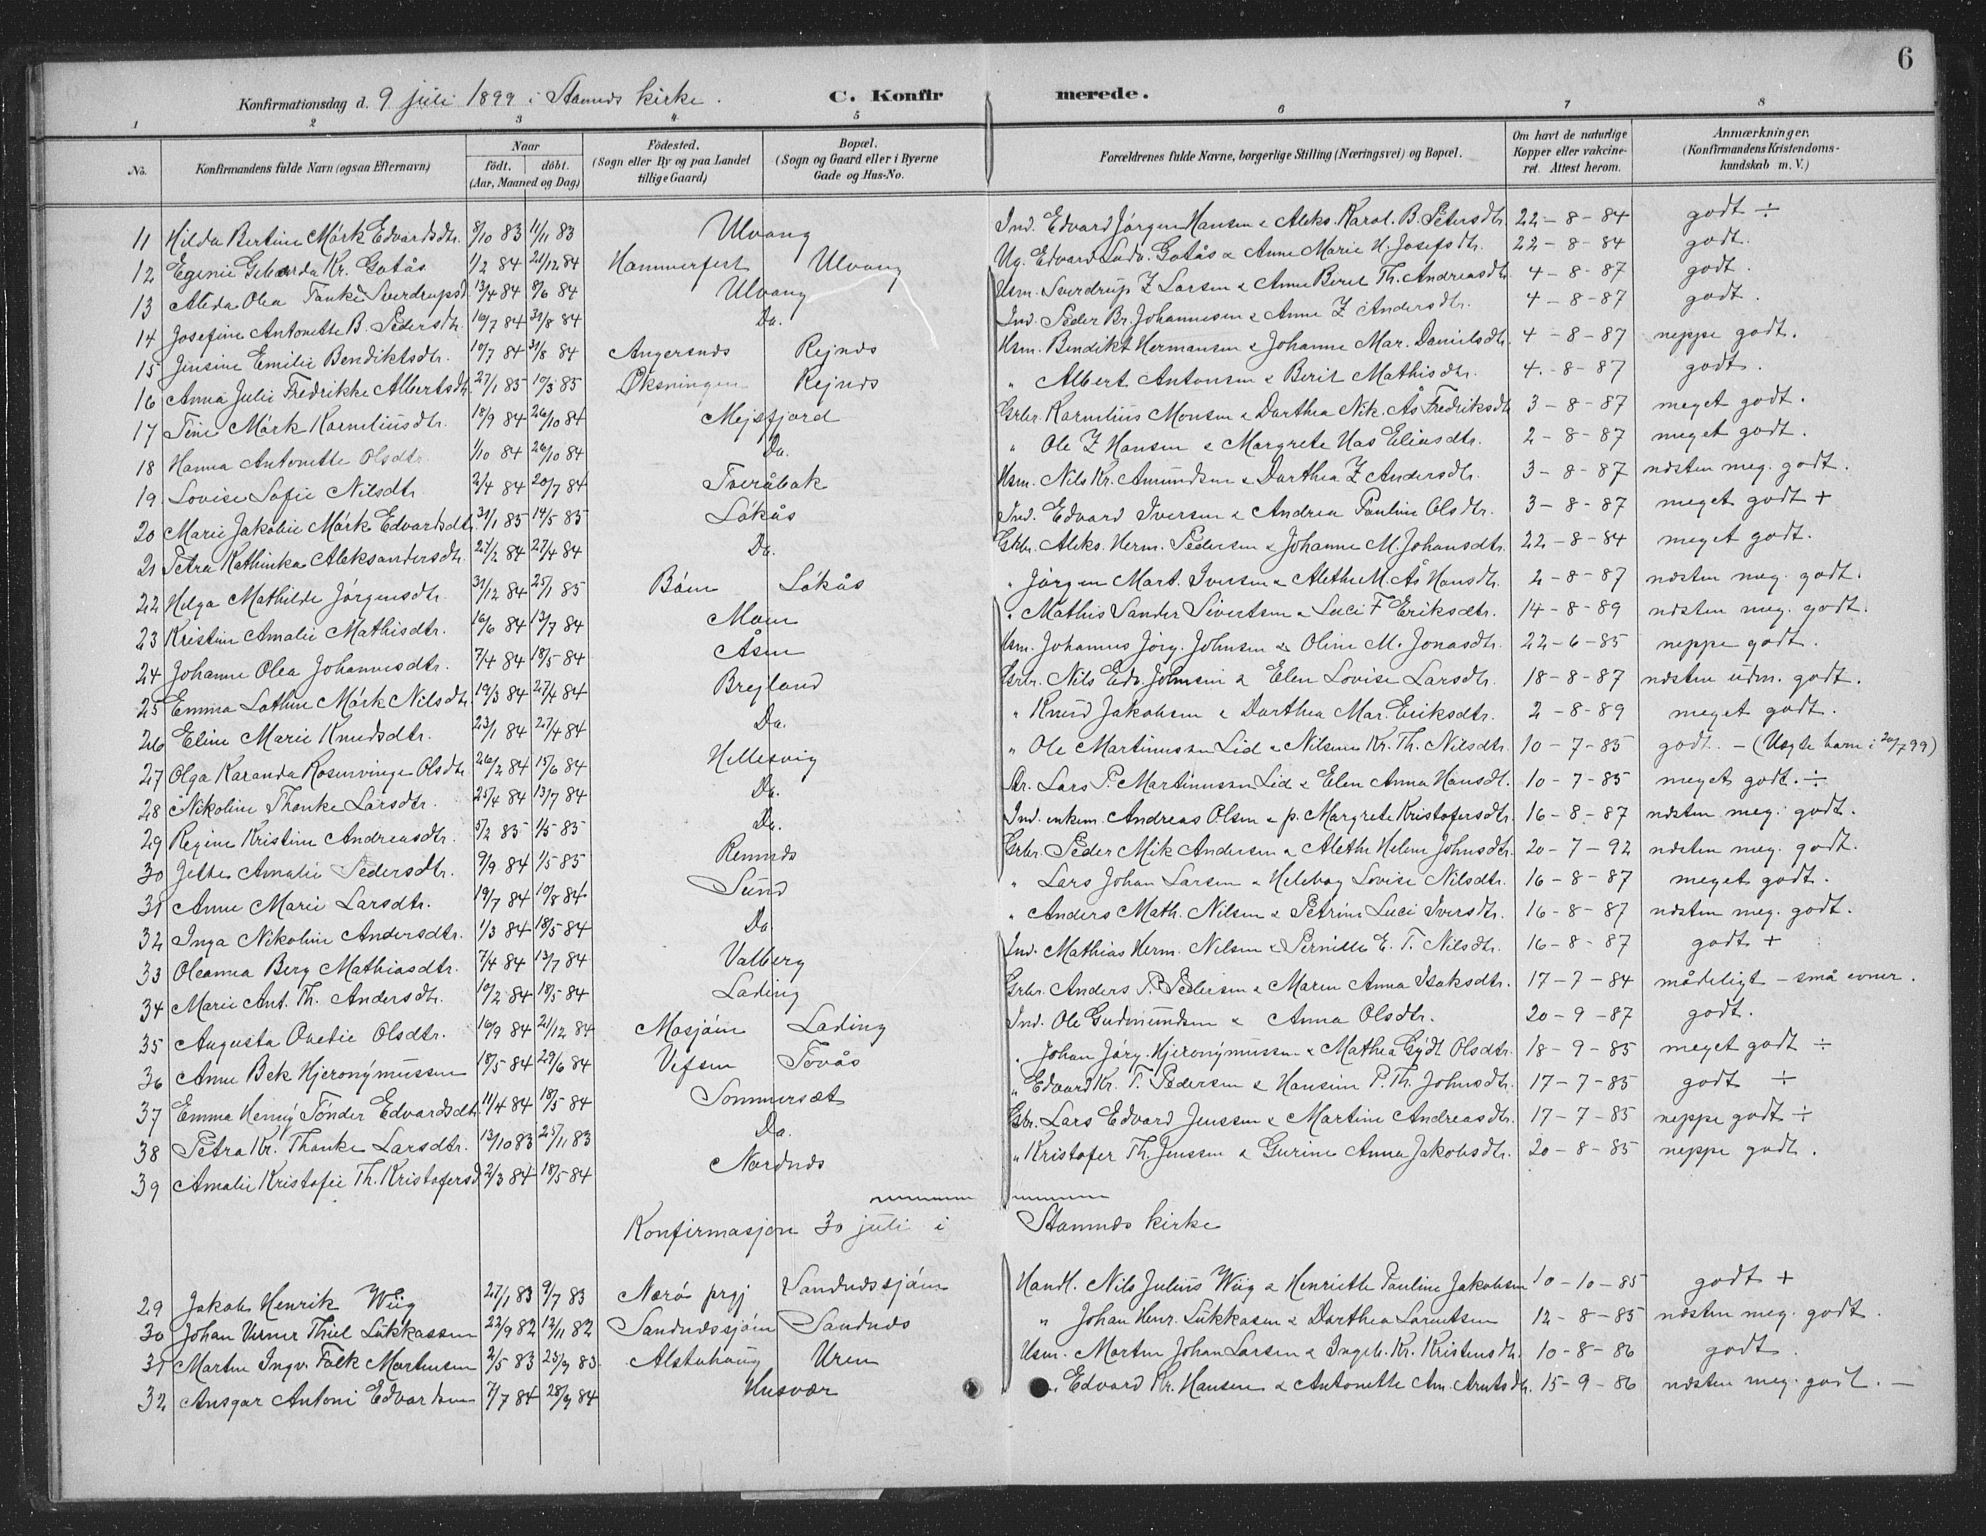 6
Konfirmationsdag d. 9 juli 1899 i Stamnes kirke. C. Konfirmerede.
1 2 3 4 5 6 7 8
No. Konfirmandens fulde Navn (ogsaa Efternavn) Naar født. døbt. (Aar, Maaned og Dag) Fødested. (Sogn eller By og paa Landet tillige Gaard) Bopæl. (Sogn og Gaard eller i Byerne Gade og Hus-No. Forældrenes fulde Navne, borgerlige Stilling (Næringsvei) og Bopæl. Om havt de naturlige Kopper eller vaccineret. Attest herom. Anmærkninger. (Konfirmandens Kristendomskundskab m. V.)
11 Hilda Bertine Mörk Edvardsdtr. 8/10 83 11/11 83 Ulvang Ind. Edvard Jörgen Hansen & Aleks. Karol. B. Petersdtr. 22-8-84 godt ÷
12 Egenie Kr. Gotås 1/2 84 21/12 84 Hammerfest Ulvang Ug. Edvard Ludv. Gotås & Anne Marie H. Josefsdtr. 22-8-84 godt.
13 Alida Olea Tanke Sverdrupsd. 13/4 84 8/6 84 Ulvang Usm. Sverdrup Z Larsen & Anne Beret Th. Andreasdtr. 4-8-87 godt.
14 Josefine Antonette B. Pedersdtr. 16/7 84 31/8 84 Do. Ind. Peder Br. Johannesen & Anne Z Andersdtr. 4-8-87 godt.
15 Jensine Emilie Bendiktsdtr. 10/7 84 31/8 84 Angersnes Rejnes Usm. Bendikt Hermansen & Johanne Mar. Danielsdtr. 4-8-87 neppe godt.
16 Anna Julie Fredrikke Albertsdtr. 27/1 85 10/3 85 Öksningen Rejnes " Albert Antonsen & Berit Mathisdtr. 4-8-87 godt.
17 Tine Mörk Korneliusdtr. 18/9 84 26/10 84 Mejsfjord Grbr. Kornelius Monsen & Darthea Nik. Ås Fredriksdtr 3-8-87 meget godt.
18 Hanna Antonette Olsdtr 1/10 84 26/10 84 Do. " Ole Z Hansen & Margrete Has Eliasdtr. 2-8-87 meget godt.
19 Lovise Sofie Nilsdtr 2/4 84 20/7 84 Tveråbak Usm. Nils Kr. Amundsen & Darthea Z Andersdtr. 3-8-87 næsten meg. godt.
20 Marie Jakobie Mörk Edvardsdtr. 31/1 85 14/5 85 Lökås Ind. Edvard Iversen & Andrea Pauline Olsdtr. 3-8-87 meget godt +
21 Petra Kathinka Aleksandersdtr. 27/2 84 27/4 84 Do. Grbr. Aleks. Herm. Pedersen & Johanne M. Johansdtr. 22-8-84 meget godt.
22 Helga Mathilde Jörgensdtr. 31/12 84 25/1 85 Böen Lökås " Jörgen Mart. Iversen & Alethe M. Ås Hansdtr. 2-8-87 næsten meg. godt.
23 Kristine Amalie Mathisdtr. 16/6 84 13/7 84 Moen " Mathis Sander Sivertsen & Luci F Eriksdtr. 14-8-89 næsten meg. godt.
24 Johanne Olea Johannesdtr. 7/4 84 18/5 84 Åsen Usm. Johannes Jörg. Johnsen & Oline M. Jonasdtr. 22-6-85 neppe godt.
25 Emma Lothine Mörk Nilsdtr 19/3 84 27/4 84 Brejland Grbr. Nils Edv. Johnsen & Elen Lovise Larsdtr. 18-8-87 næsten udm. godt.
26 Eline Marie Knudsdtr. 23/1 84 27/4 84 Do. " Knud Jakobsen & Darthea Mar. Eriksdtr. 2-8-89 meget godt.
27 Olga Karanda Rosenvinge Olsdtr 26/2 84 15/6 84 Hellesvig " Ole Martinussen Lid & Nilsine Kr. Th. Nilsdtr. 10-7-85 godt. - (Uegte barn i 20/7 99)
28 Nikoline Thanke Larsdtr. 25/4 84 13/7 84 Do. Do. Lars P. Martinussen Lid & Elen Anna Hansdt. 10-7-85 meget godt. ÷
29 Regine Kristine Andreasdtr. 5/2 85 1/5 85 Do. Ind. enkem. Andreas Olsen & p. Margrete Kristofersdtr. 16-8-87 næsten meg. godt.
30 Jette Amalie Pedersdtr. 9/9 84 1/5 85 Remnes Grbr. Peder Mik Andersen & Alethe Helene Johnsdtr. 20-7-92 næsten meg. godt.
31 Anne Marie Larsdtr. 19/7 84 10/8 84 Sund " Lars Johan Larsen & Helebog Lovise Nilsdtr. 16-8-87 meget godt.
32 Inga Nikoline Andersdtr. 1/3 84 18/5 84 Do " Anders Math. Nilsen & Petrine Luci Iversdtr. 16-8-87 næsten meg. godt.
33 Oleanna Berg Mathiasdtr. 7/4 84 13/7 84 Valberg Ind. Mathias Herm. Nilsen & Pernille E. T. Nilsdtr. 16-8-87 godt +
34 Marie Ant. Th. Andersdtr. 10/2 84 18/5 84 Lading Grbr. Anders P. Pedersen & Maren Anna Isaksdtr. 17-7-84 mådeligt - små evner.
35 Augusta Ovetie Olsdtr. 16/9 84 21/12 84 Mosjöen Lading Ind. Ole Gudmundsen & Anna Olsdtr. 20-9-87 godt.
36 Anne Bek Hjeronymussen 18/5 84 29/6 84 Vefsen Tovås " Johan Jörg. Hjeronymussen & Mathea Gydt Olsdtr. 18-9-85 meget godt ÷
37 Emma Henny Tönder Edvardsdtr 11/4 84 18/5 84 Sommersæt " Edvard Kr. T. Pedersen & Hansine P. Th. Johnsdtr. 17-7-85 godt ÷
38 Petra Kr. Thanke Larsdtr. 13/10 83 25/11 83 Do. Gbr. Lars Edvard Jenssen & Martine Andreasdtr. 17-7-85 neppe godt ÷
39 Amalie Kristofie Th. Kristofersd. 2/3 84 18/5 84 Nordnes " Kristofer Th. Jenssen & Gurine Anna Jakobsdtr. 20-8-85 neppe godt.
Konfirmasjon 30 juli i Stamnes kirke
29 Jakob Henrik Wiig 27/1 83 9/7 83 Nærö prgj Sandnessjöen Handl. Nils Julius Wiig & Henriette Pauline Jakobsen 10-10-85 godt +
30 Johan Verner Thiel Lukkassen 22/9 82 12/11 82 Sandnessjöen Sandnes " Johan Henr. Lukkasen & Darthea Lorentsen 12-8-85 næsten meg. godt.
31 Martin Ingv. Falk Martinsen 2/5 83 25/9 83. Alstahoug Uren Usm. Martin Johan Larsen & Ingeb. Kr. Kristensdtr. 10-8-86 godt.
32 Ansgar Antoni Edvardsen 7/7 84 28/9 84 Husvær " Edvard Kr. Hansen & Antonette An. Arntsdtr. 15-9-86 næsten meg. godt. -